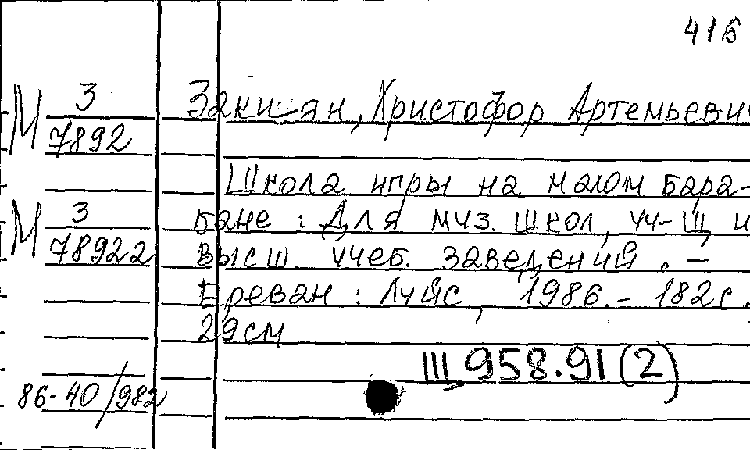 416
М 3
7892
Закиян, Христофор Артемьеви
Школа игры на малом бара-
М 3
7892 2
бане : Для муз. школ, уч-щ и
высш. учеб. заведений. —
Ереван : Луйс, 1986. - 182 с.
29 см
III 958.91 (2)
86-40/982